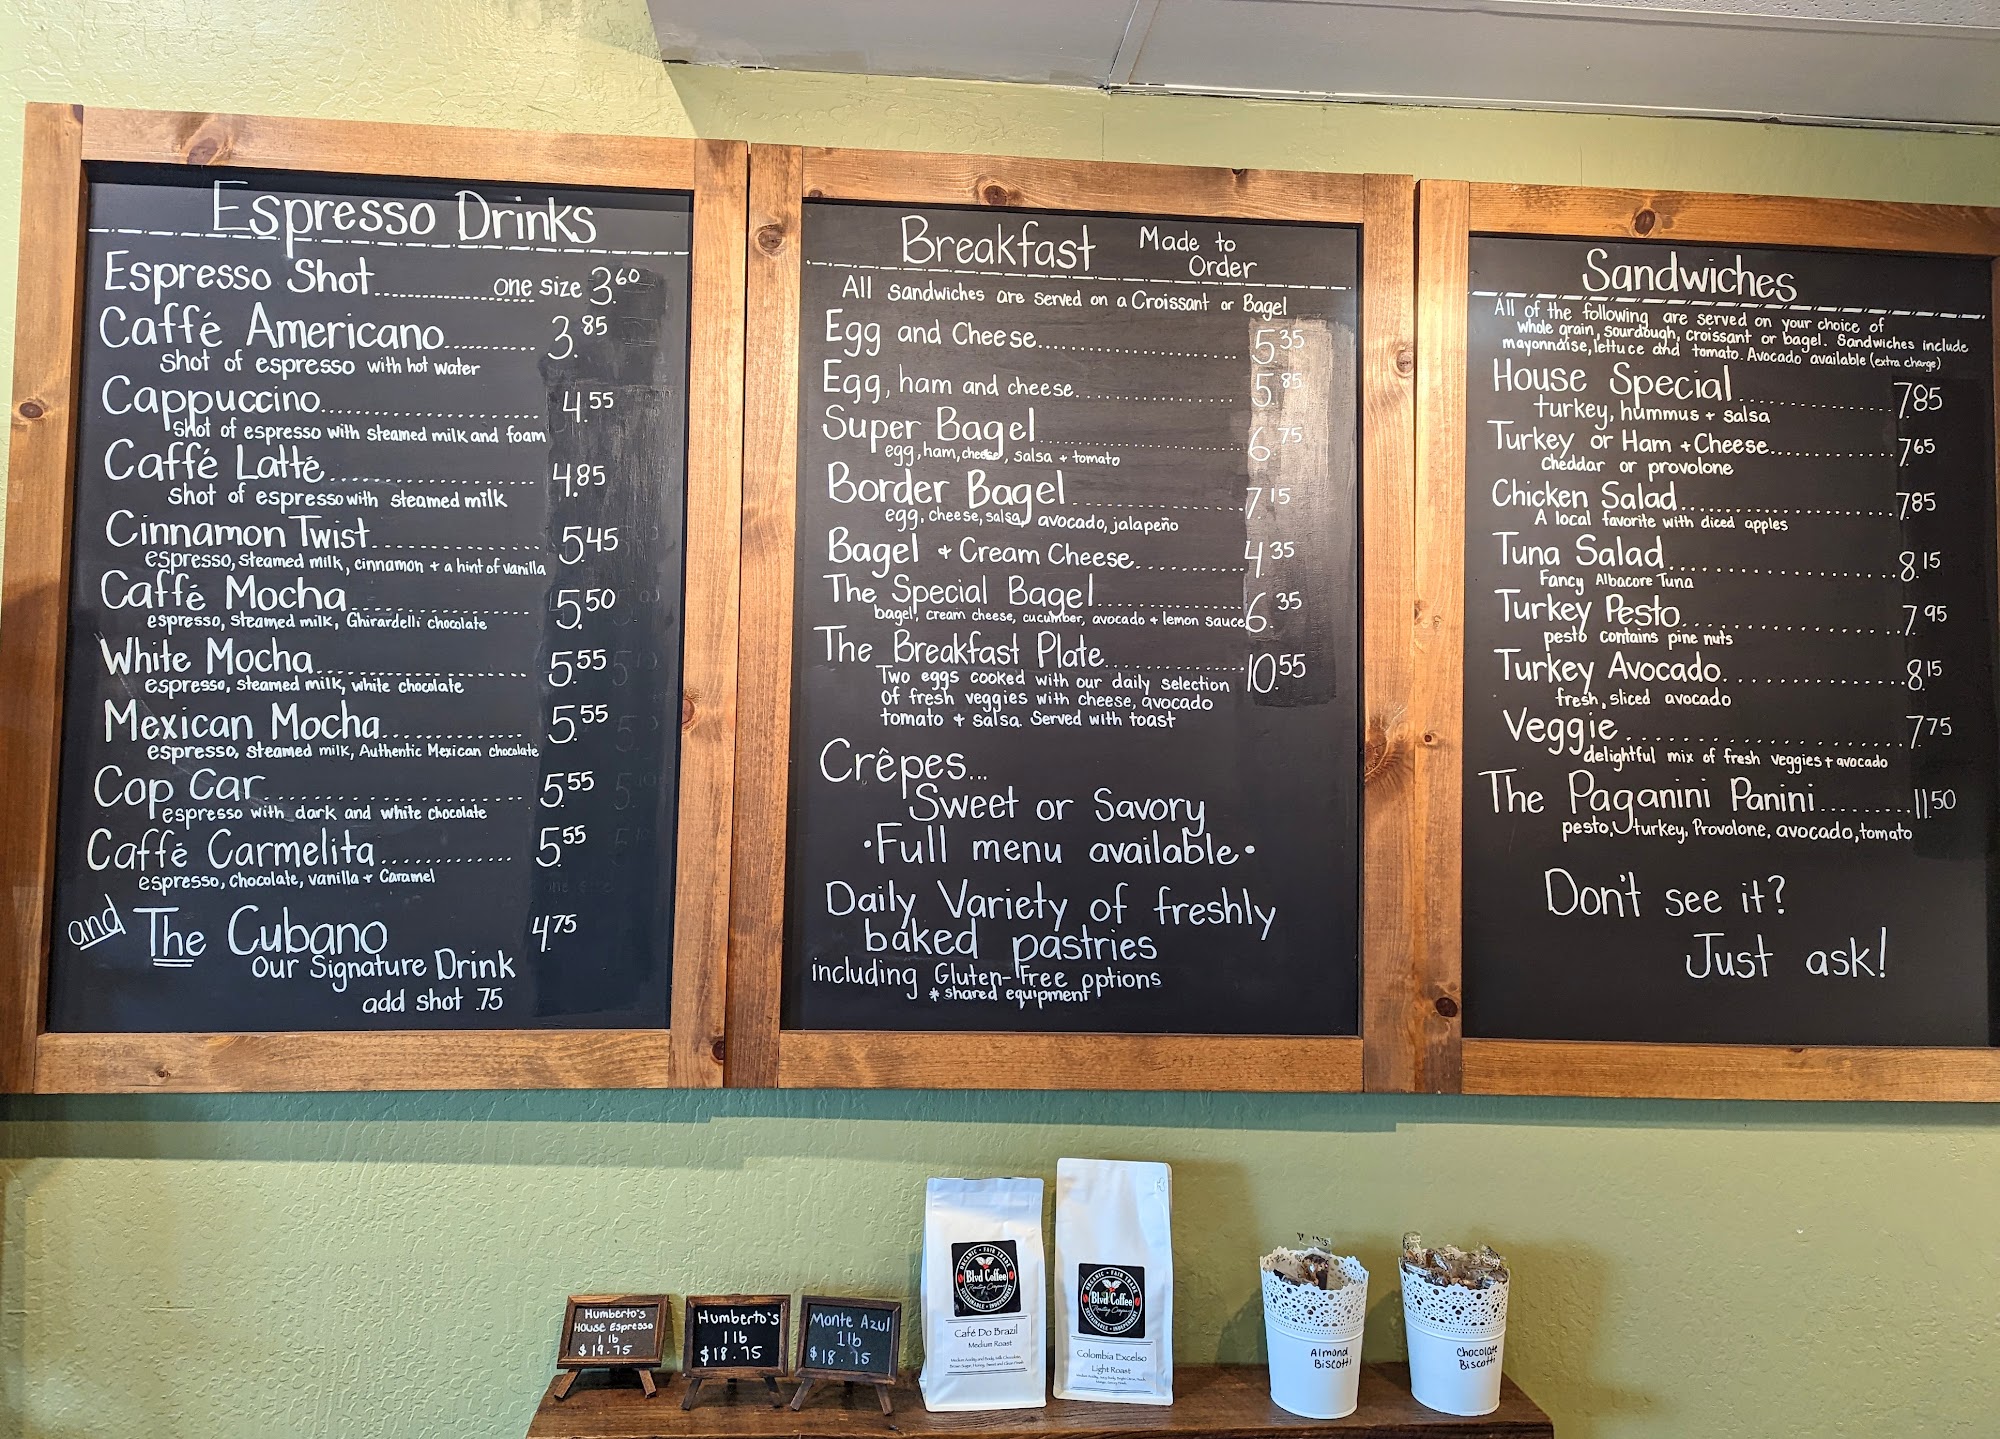 Espresso Drinks
Espresso Shot one size 3.60
Caffé Americano 3.85
shot of espresso with hot water
Cappuccino 4.55
shot of espresso with steamed milk and foam
Caffé Latté 4.85
shot of espresso with steamed milk
Cinnamon Twist 5.45
espresso, steamed milk, cinnamon + a hint of vanilla
Caffé Mocha 5.50
espresso, steamed milk, Ghirardelli chocolate
White Mocha 5.55
espresso, steamed milk, white chocolate
Mexican Mocha 5.55
espresso, steamed milk, Authentic Mexican chocolate
Cop Car 5.55
espresso with dark and white chocolate
Caffé Carmelita 5.55
espresso, chocolate, vanilla + Caramel
and The Cubano 4.75
our Signature Drink
add shot .75
Breakfast Made to
Order
All sandwiches are served on a Croissant or Bagel
Egg and Cheese 5.35
Egg, ham and cheese 5.85
Super Bagel 6.75
egg, ham, cheese, salsa + tomato
Border Bagel 7.15
egg, cheese, salsa, avocado, jalapeño
Bagel + Cream Cheese 4.35
The Special Bagel 6.35
bagel, cream cheese, cucumber, avocado + lemon sauce
The Breakfast Plate 10.55
Two eggs cooked with our daily selection
of fresh veggies with cheese, avocado
tomato + salsa. Served with toast
Crêpes...
Sweet or Savory
•Full menu available•
Daily Variety of freshly
baked pastries
including Gluten-Free options
* shared equipment
Sandwiches
All of the following are served on your choice of
whole grain, sourdough, croissant or bagel. Sandwiches include
mayonnaise, lettuce and tomato. Avocado available (extra charge)
House Special 7.85
turkey, hummus + salsa
Turkey or Ham + Cheese 7.65
cheddar or provolone
Chicken Salad 7.85
A local favorite with diced apples
Tuna Salad 8.15
Fancy Albacore Tuna
Turkey Pesto 7.95
pesto contains pine nuts
Turkey Avocado 8.15
fresh, sliced avocado
Veggie 7.75
delightful mix of fresh veggies + avocado
The Paganini Panini 11.50
pesto, turkey, Provolone, avocado, tomato
Don't see it?
Just ask!
Humberto's
House Espresso
1 lb
$19.75
Humberto's
1 lb
$18.75
Monte Azul
1 lb
$18.75
ORGANIC • FAIR TRADE
Blvd Coffee
Roasting Company
SUSTAINABLE • INDEPENDENT
Café Do Brazil
Medium Roast
ORGANIC • FAIR TRADE
Blvd Coffee
Roasting Company
SUSTAINABLE • INDEPENDENT
Colombia Excelso
Light Roast
Almond
Biscotti
Chocolate
Biscotti